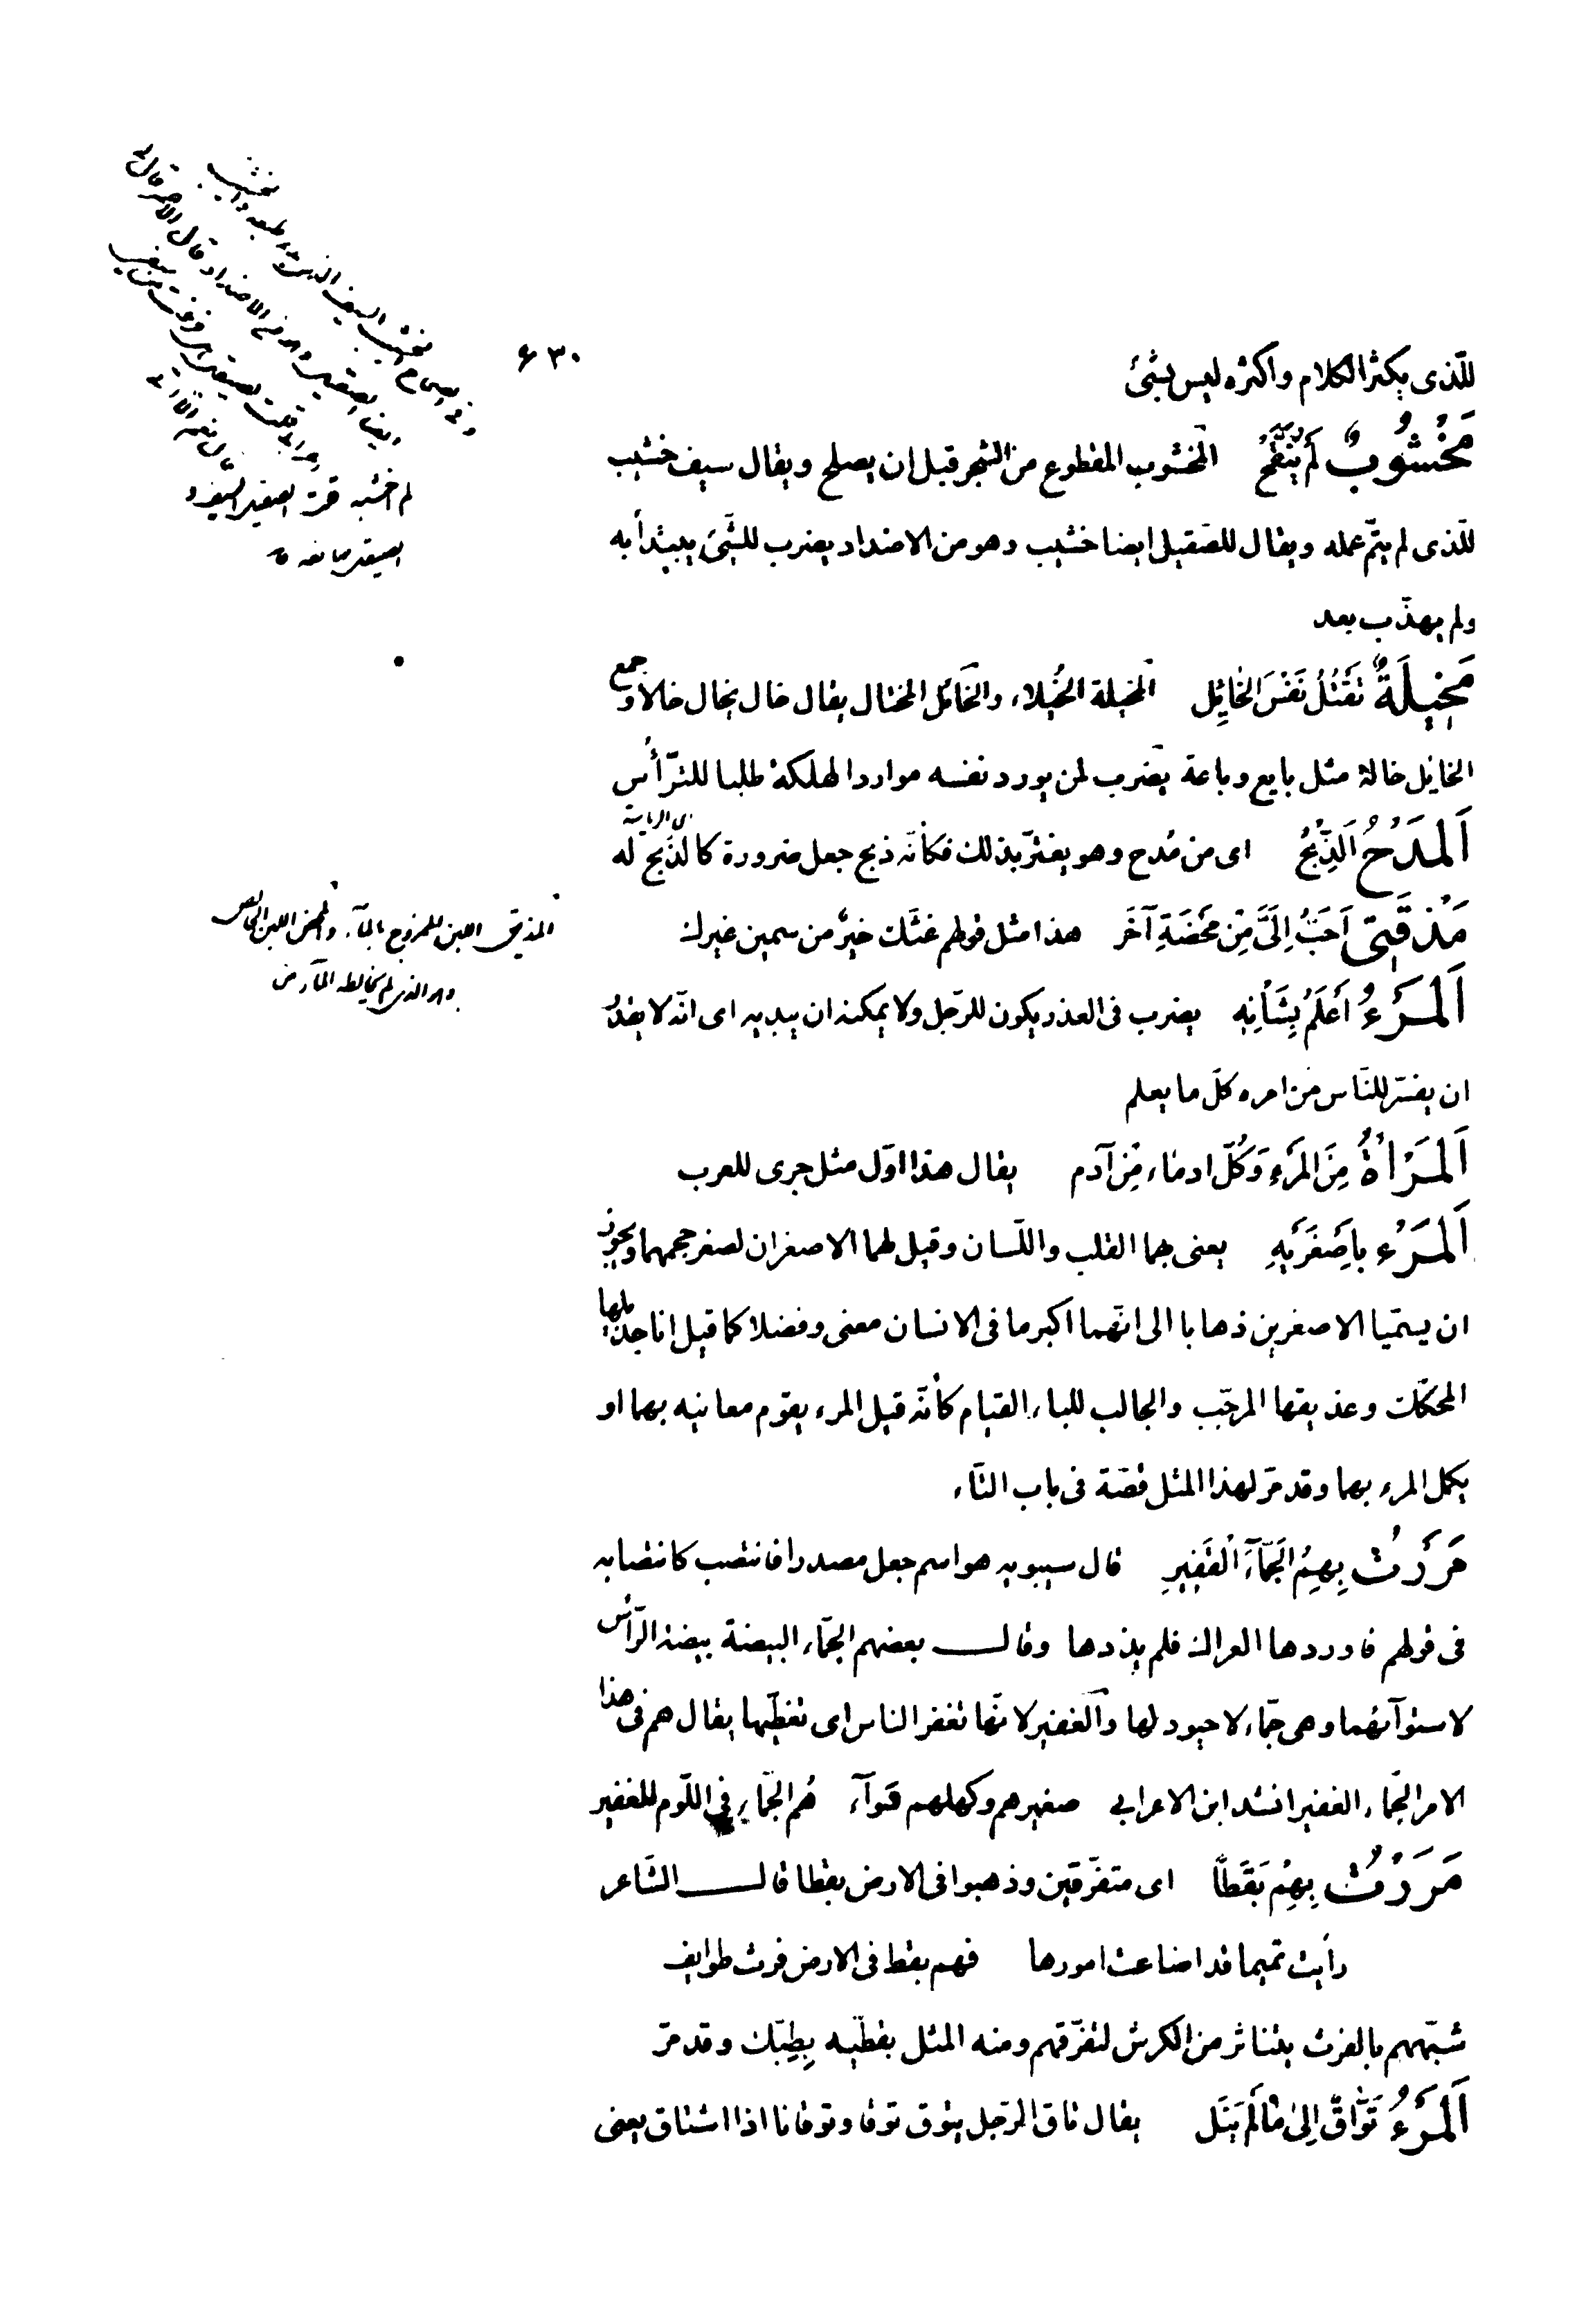 ۶۳۰
للّذى يكثر الكلام واكثره ليس بشئ
مَخْشُوبٌ لَمْ يُنَقَّحْ المخشوب المقطوع من الشجر قبل ان يصلح ويقال سيف خشيب
للّذى لم يتمّ عمله ويقال للصّقيل ايضا خشيب وهو من الاضداد يضرب للشّئ يبتدأ به
ولم يهذّب بعد
مَخِيلَةٌ تَقْتُلُ نَفْسَ الخَايِلِ المخيلة الخُيلاء والخائل المختال يقال خال يخال خالا وجمع
الخايل خالة مثل بايع وباعة يضرب لمن يورد نفسه موارد الهلكة طلبا للترّأس
اى الرياسة
اَلمَدْحُ اَلذِّبْحُ اى من مُدح وهو يغترّ بذلك فكأنّه ذبح جعل ضرورة كالذّبح له
مَذْقَتِى اَحَبُّ اِلَىَّ مِنْ مَحْضَةِ آخَرَ هذا مثل قولهم غثّك خيرٌ من سمين غيرك
اَلمَرْءُ اَعْلَمُ بِشَأنِهِ يضرب فى العذر يكون للرّجل ولا يمكنه ان يبديه اى انّه لا يقدر
ان يفسّر للنّاس من امره كلّ ما يعلم
اَلمَرْأةُ مِنَ المَرْءِ وَكُلّ ادماء مِن آدم يقال هذا اوّل مثل جرى للعرب
اَلمَرْءُ بِاَصْغَرَيْهِ يعنى بهما القلب واللّسان وقيل لهما الاصغران لصغر حجمهما ويجوز
ان يسمّيا الاصغرين ذهابا الى انّهما اكبر ما فى الانسان معنى وفضلا كما قيل انا جذيلها
المحكّك وعذيقها المرجّب والجالب للباء القيام كأنّه قيل المرء يقوم معانيه بهما او
يكمل المرء بهما وقد مرّ لهذا المثل قصّة فى باب التّاء
مَرَرْتُ بِهِمُ الجَمَّآءَ الْغَفِيرَ قال سيبويه هو اسم جعل مصدرا فانتصب كانتصابه
فى قولهم فاوردها العراك فلم يذدها وقال بعضهم الجمّاء البيضة بيضة الرّأس
لاستوآئهما وهى جمّاء لا حيود لها والغفير لانّها تغفر الناس اى تغطّيها يقال هم فى هذا
الامر الجمّاء الغفير انشد ابن الاعرابى صغيرهم وكهلهم سَوآء هُم الجمّاء فى اللّوم الغفير
مَرَرْتُ بِهِمْ بَقَطًا اى متفرّقين وذهبوا فى الارض بقطا قال الشّاعر
رأيت تميما قد اضاعت امورها فهم بقط فى الارض فرث طوايف
شبّههم بالفرث يتناثر من الكرش لتفرّقهم ومنه المثل بقّطيه بِطِبّك وقد مرّ
اَلمَرْءُ تَوَّاقٌ اِلىٰ مَا لَمْ يَنَل يقال تاق الرّجل يتوق توقا وتوقانا اذا اشتاق يعنى
المذيق اللبن الممزوج بالمآء والمحض اللبن الخالص
وهو الذى لم يخالطه المآء